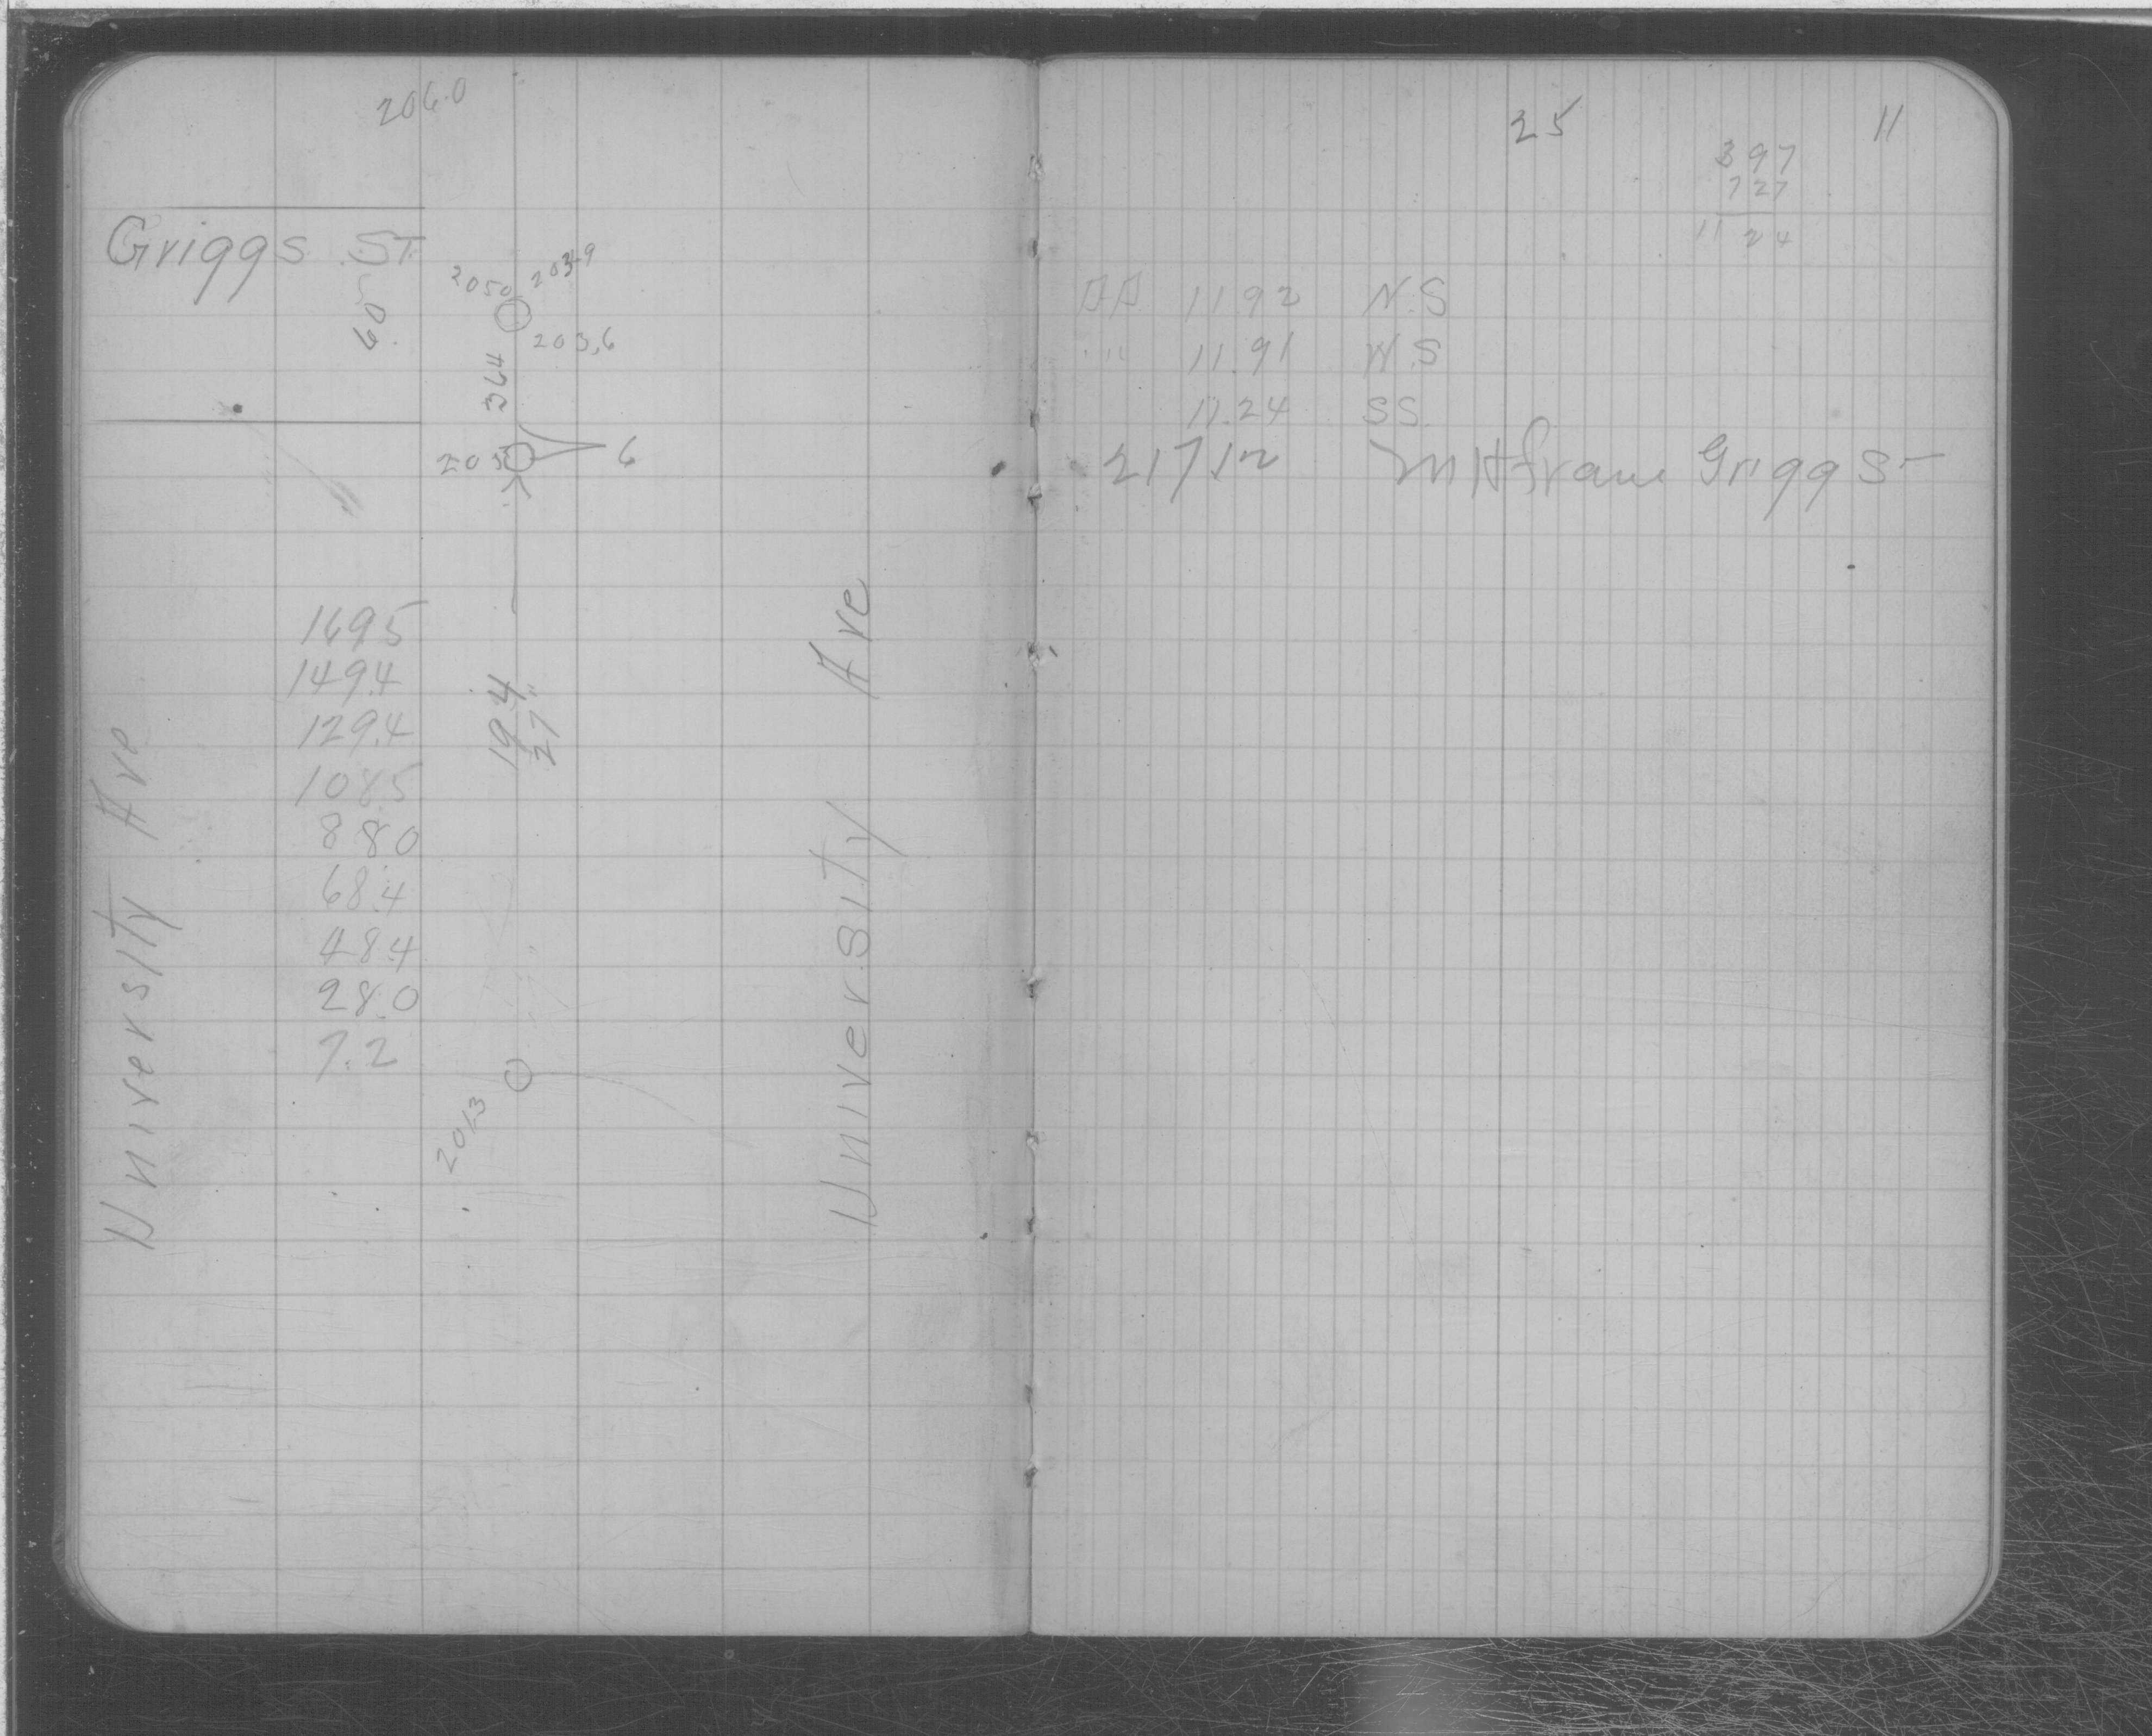 206.0
Griggs St.
60
2050 2039
203,6
364
203
6
1695
149.4
129.4
108.5
88.0
68.4
48.4
28.0
7.2
194
27"
201.3
University Ave
University Ave
25 11
397
727
11 24
11 92 N.S
" 11.91 W.S
11.24 SS.
217 12 MH frame Griggs